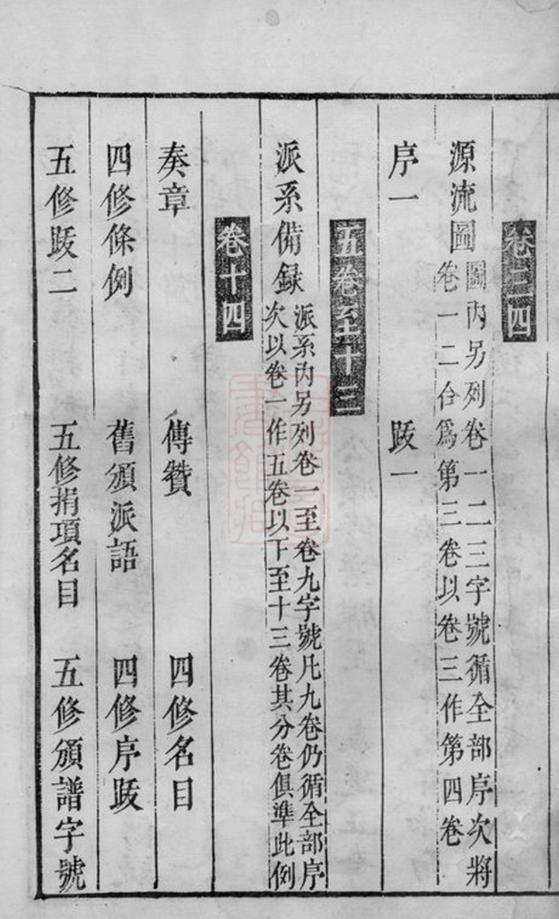 卷三四
源流圖 圖內另列卷一二三字號循全部序次將
卷一二合爲第三卷以卷三作第四卷
序一 跋一
五卷至十三
派系備録 派系內另列卷一至卷九字號凡九卷仍循全部序
次以卷一作五卷以下至十三卷其分卷俱準此例
卷十四
奏章 傳贊 四修名目
四修條例 舊頒派語 四修序跋
五修跋二 五修捐項名目 五修頒譜字號